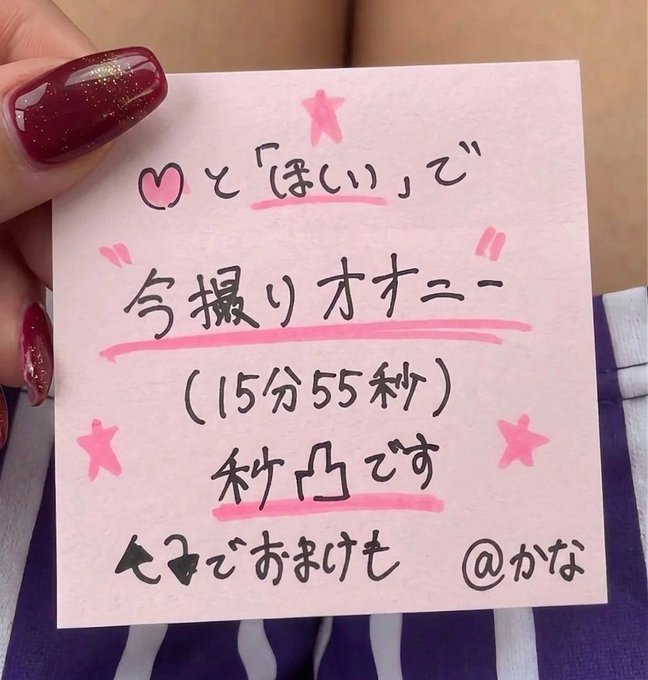 ♡と「ほしい」で
"今撮りオナニー"
(15分55秒)
秒凸です
でおまけも
@かな